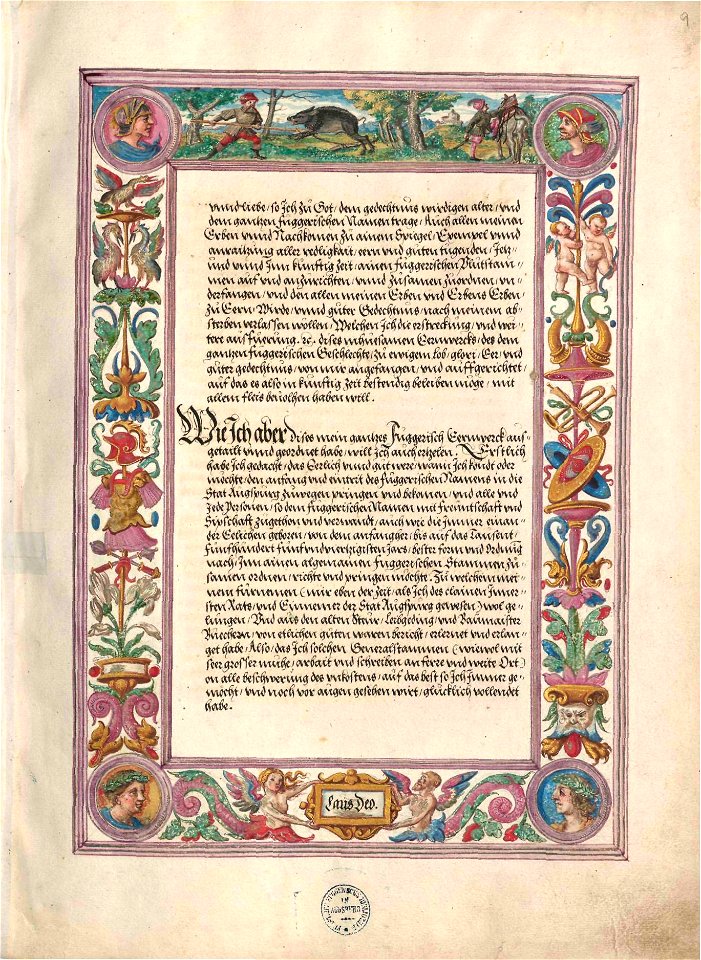 9
vnnd liebe / so Ich zů Got / dem gedechtnus wirdigen alter / vnd
dem gantzen Fuggerischen Namen trage / Auch allen meinen
Erben vnnd Nachkomen zu ainem Spiegel / Exempel vnnd
anraitzung aller redligkait / eern vnd gůten tugenden / Jetz
vnnd vnnd Inn kunfftig zeit / ainen Fuggerischen
men auf vnd anzůrichten / vnnd zůsamen zůordnen / vn-
derfangen / vnd den allen meinen Erben vnd Erbens Erben
zů Eern / Wirde / vnnd gůter Gedechtnus / nach meinem ab-
sterben verlassen wöllen / Welchen Ich die erstreckung / vnd wei-
tere ausfierung / ꝛc. dises müehsamen Eernwercks / des dem
gantzen Fuggerischen Geschlechte / zů ewigem lob / glori / Eer / vnd
gůter gedechtnus / von mir angefangen / vnd auffgerichtet /
auf das es also in kůnftig zeit bestendig beleiben möge / mit
allem fleis beuolhen haben will.
Wie Ich aber dises mein gantzes Fuggerisch Eernwerck aus-
getailt vnnd geordnet habe / will Ich auch ertzelen. Erstlich
habe Ich gedacht / das Eerlich vnnd gůt were / wann Ich kondt oder
möchte / den anfang vnd eintrit des Fuggerischen Namens in die
Stat Augspurg zůwegen pringen vnd bekomen / vnd alle vnd
Jede Personen / so dem Fuggerischen Namen mit Freintschaft vnd
Sipschaft zůgethon vnd verwandt / auch wie die Immer einan-
der Eelichen geboren / von dem anfangher / bis auf das Tausent /
Fünfhundert fünfvndviertzigisten Jars / bester form vnd Ordnung
nach / Inn ainen algemainen Fuggerischen Stammen zů-
samen ordnen / richte vnd pringen möchte. Zů welchem mei-
nem fürnemen (mir eben der zeit / als Ich des clainen Inner-
sten Rats / vnd Einnemer der Stat Augspurg gewesen) wol ge-
lungen / Vnd aus den alten Steur / Leibgeding / vnd Baumaister
Büechern / von etlichen gůten waren bericht / erlernet vnd erlan-
get habe / Also / das Ich solchen Generalstammen (wiewol mit
seer grosser mühe / arbait vnd schreiben an ferre vnd weite Ort)
on alle beschwerung des vnkostens / auf das best so Ich Immer ge-
möcht / vnd noch vor augen gesehen wirt / glücklich vollendet
habe.
Laus Deo.
IN
AUGSBURG